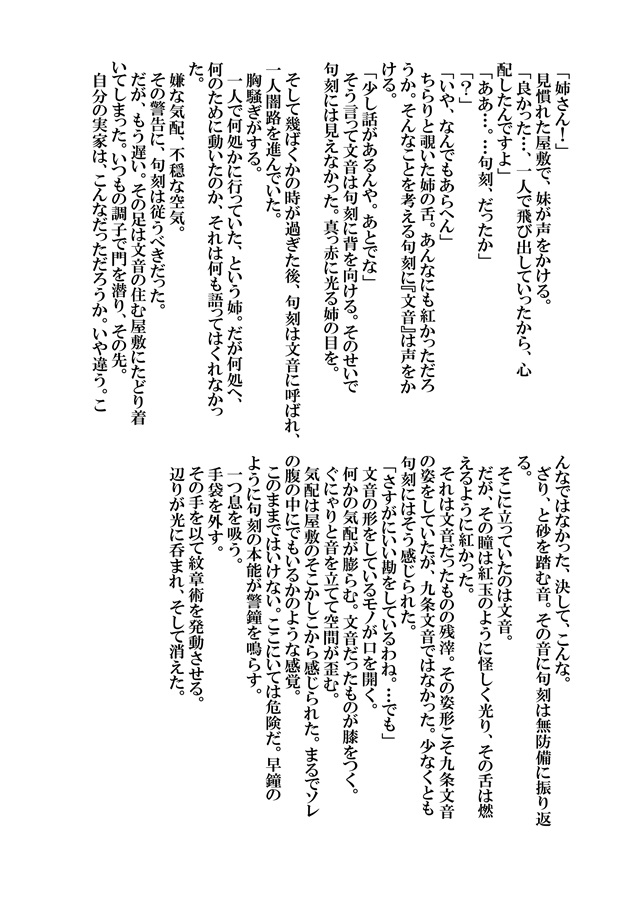 「姉さん！」
見慣れた屋敷で、妹が声をかける。
「良かった…、一人で飛び出していったから、心
配したんですよ」
「ああ…。…句刻、だったか」
「？」
「いや、なんでもあらへん」
ちらりと覗いた姉の舌。あんなにも紅かっただろ
うか。そんなことを考える句刻に『文音』は声をか
ける。
「少し話があるんや。あとでな」
そう言って文音は句刻に背を向ける。そのせいで
句刻には見えなかった。真っ赤に光る姉の目を。
そして幾ばくかの時が過ぎた後、句刻は文音に呼ばれ、
一人闇路を進んでいた。
胸騒ぎがする。
一人で何処かに行っていた、という姉。だが何処へ、
何のために動いたのか、それは何も語ってはくれなかっ
た。
嫌な気配、不穏な空気。
その警告に、句刻は従うべきだった。
だが、もう遅い。その足は文音の住む屋敷にたどり着
いてしまった。いつもの調子で門を潜り、その先。
自分の実家は、こんなだっただろうか。いや違う。こ
んなではなかった、決して、こんな。
ざり、と砂を踏む音。その音に句刻は無防備に振り返
る。
そこに立っていたのは文音。
だが、その瞳は紅玉のように怪しく光り、その舌は燃
えるように紅かった。
それは文音だったものの残滓。その姿形こそ九条文音
の姿をしていたが、九条文音ではなかった。少なくとも
句刻にはそう感じられた。
「さすがにいい勘をしているわね。…でも」
文音の形をしているモノが口を開く。
何かの気配が膨らむ。文音だったものが膝をつく。
ぐにゃりと音を立てて空間が歪む。
気配は屋敷のそこかしこから感じられた。まるでソレ
の腹の中にでもいるかのような感覚。
このままではいけない。ここにいては危険だ。早鐘の
ように句刻の本能が警鐘を鳴らす。
一つ息を吸う。
手袋を外す。
その手を以て紋章術を発動させる。
辺りが光に呑まれ、そして消えた。